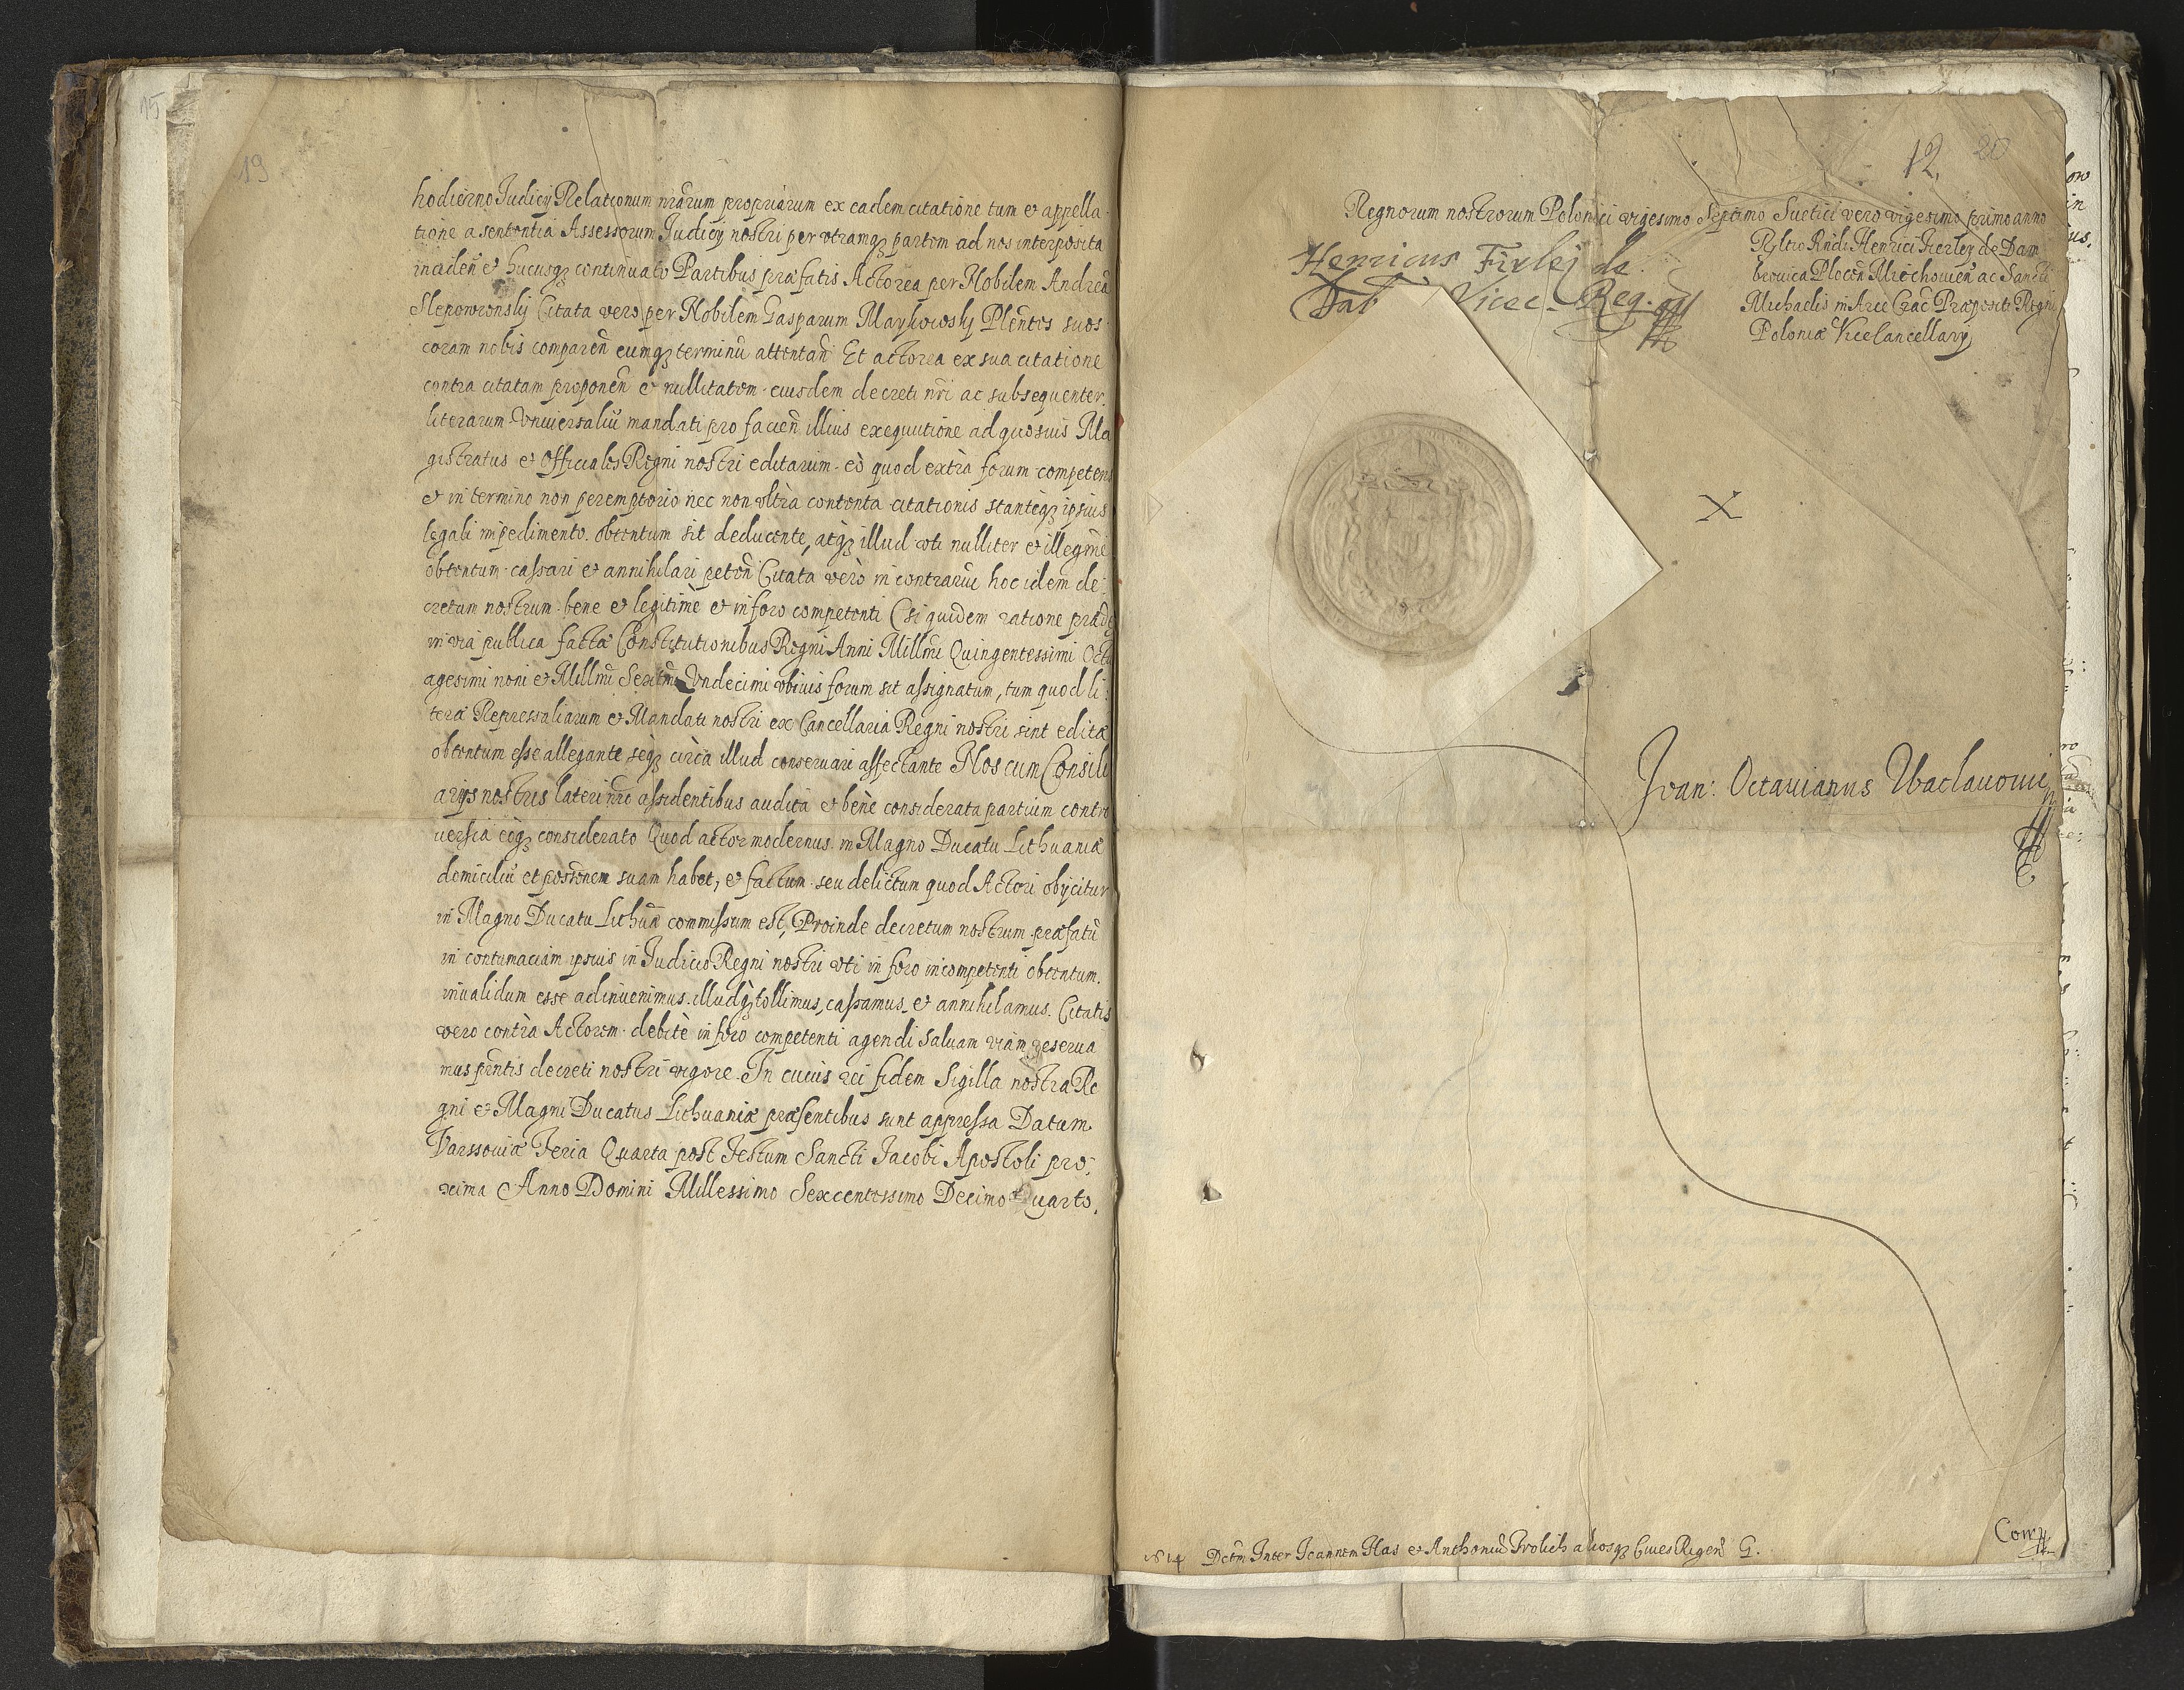 15
19
hodierno Judicÿ Relationum nr̃arum propriarum ex eadem citatione tum et appella-
tione a sententia Assessorum Judicÿ nostri per vtramq̃ partem ad nos interposita
inciden̄ et hucusq̃ continuato Partibus præfatis Actorea per Nobilem Andreā
Slepowronsky Citata vero per Nobilem Gasparum Maykowsky Plen̄tes suos
coram nobis comparen̄ eumq̃ terminū attentan̄ Et actorea ex sua citatione
contra citatam proponen̄ et nullitatem eiusdem decreti nr̃i ac subsequenter
literarum Vniuersaliū mandati pro facien̄ illius exequutione ad quosuis Ma
gistratus et Officiales Regni nostri editarum eò quod extra forum competens
et in termino non peremptorio nec non vltra contenta citationis stanteq̃ ipsius
legali impedimento obtentum sit deducente, atq̃ illud vti nulliter et illegitimè
obtentum cassari et annihilari peten̄ Citata verò in contrarium hoc idem de:
cretum nostrum bene et legitimè et in foro competenti (siquidem ratione prædæ
in via publica factæ Constitutionibus Regni Anni Millmi Quingentessimi Octu
agesimi noni et Millmi Sexctmi Vndecimi vbiuis forum sit assignatum, tum quod li:
teræ Repressaliarum et Mandati nostri ex Cancellaria Regni nostri sint editæ
obtentum esse allegante seq̃ circa illud conseruari affectante Nos cum Consili
arÿs nostris lateri nr̃o assidentibus audita et benè considerata partium contro
uersia eoq̃ considerato Quod actor modernus in Magno Ducatu Lithuaniæ
domiciliū et possionem suam habet, et factum seu delictum quod Actori obÿcitur
in Magno Ducatu Lithuan̄ commissum est, Proinde decretum nostrum præfatū
in contumaciam ipsius in Judicio Regni nostri vti in foro incompetenti obtentum
inualidum esse adinuenimus illudq̃ tollimus, cassamus et annihilamus. Citatis
vero contra Actorem debitè in foro competenti agendi saluam viam reserua
mus pñtis decreti nostri vigore. In cuius rei fidem Sigilla nostra Re
gni et Magni Ducatus Lithuaniæ præsentibus sunt appressa Datum
Varssouiæ Feria Quarta post Festum Sancti Jacobi Apostoli pro:
xima Anno Domini Millessimo Sexcentessimo Decimo Quarto.
12. 20
Regnorum nostrorum Polonici vigesimo Septimo Suetici vero vigesimo primo anno
Henricus Firlej de
Dab Vice-Reg.
Rltio Rndi Henrici Fierley de Dam
brouica Plocen̄ Miechouien̄ ac Sancti
Michaelis in Arce Crac̄ Præpositi Regni
Poloniæ Vicecancellarÿ
X
Joan: Octauianus Waclauowi
Corr
1614 Dctm̄ Inter Joannem Has et Anthoniū Frolich aliosq̃ Ciues Rigen̄ G.